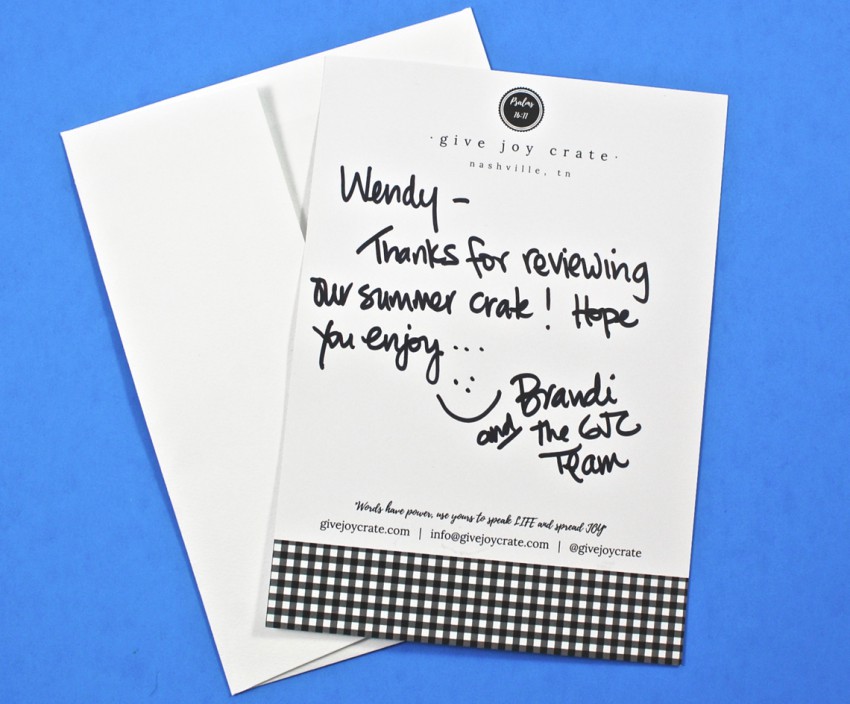 Psalms
16:11
·give joy crate·
nashville, tn
Wendy –
Thanks for reviewing
our summer crate! Hope
you enjoy...
Brandi
and the GJC
Team
"Words have power, use yours to speak LIFE and spread JOY"
givejoycrate.com | info@givejoycrate.com | @givejoycrate